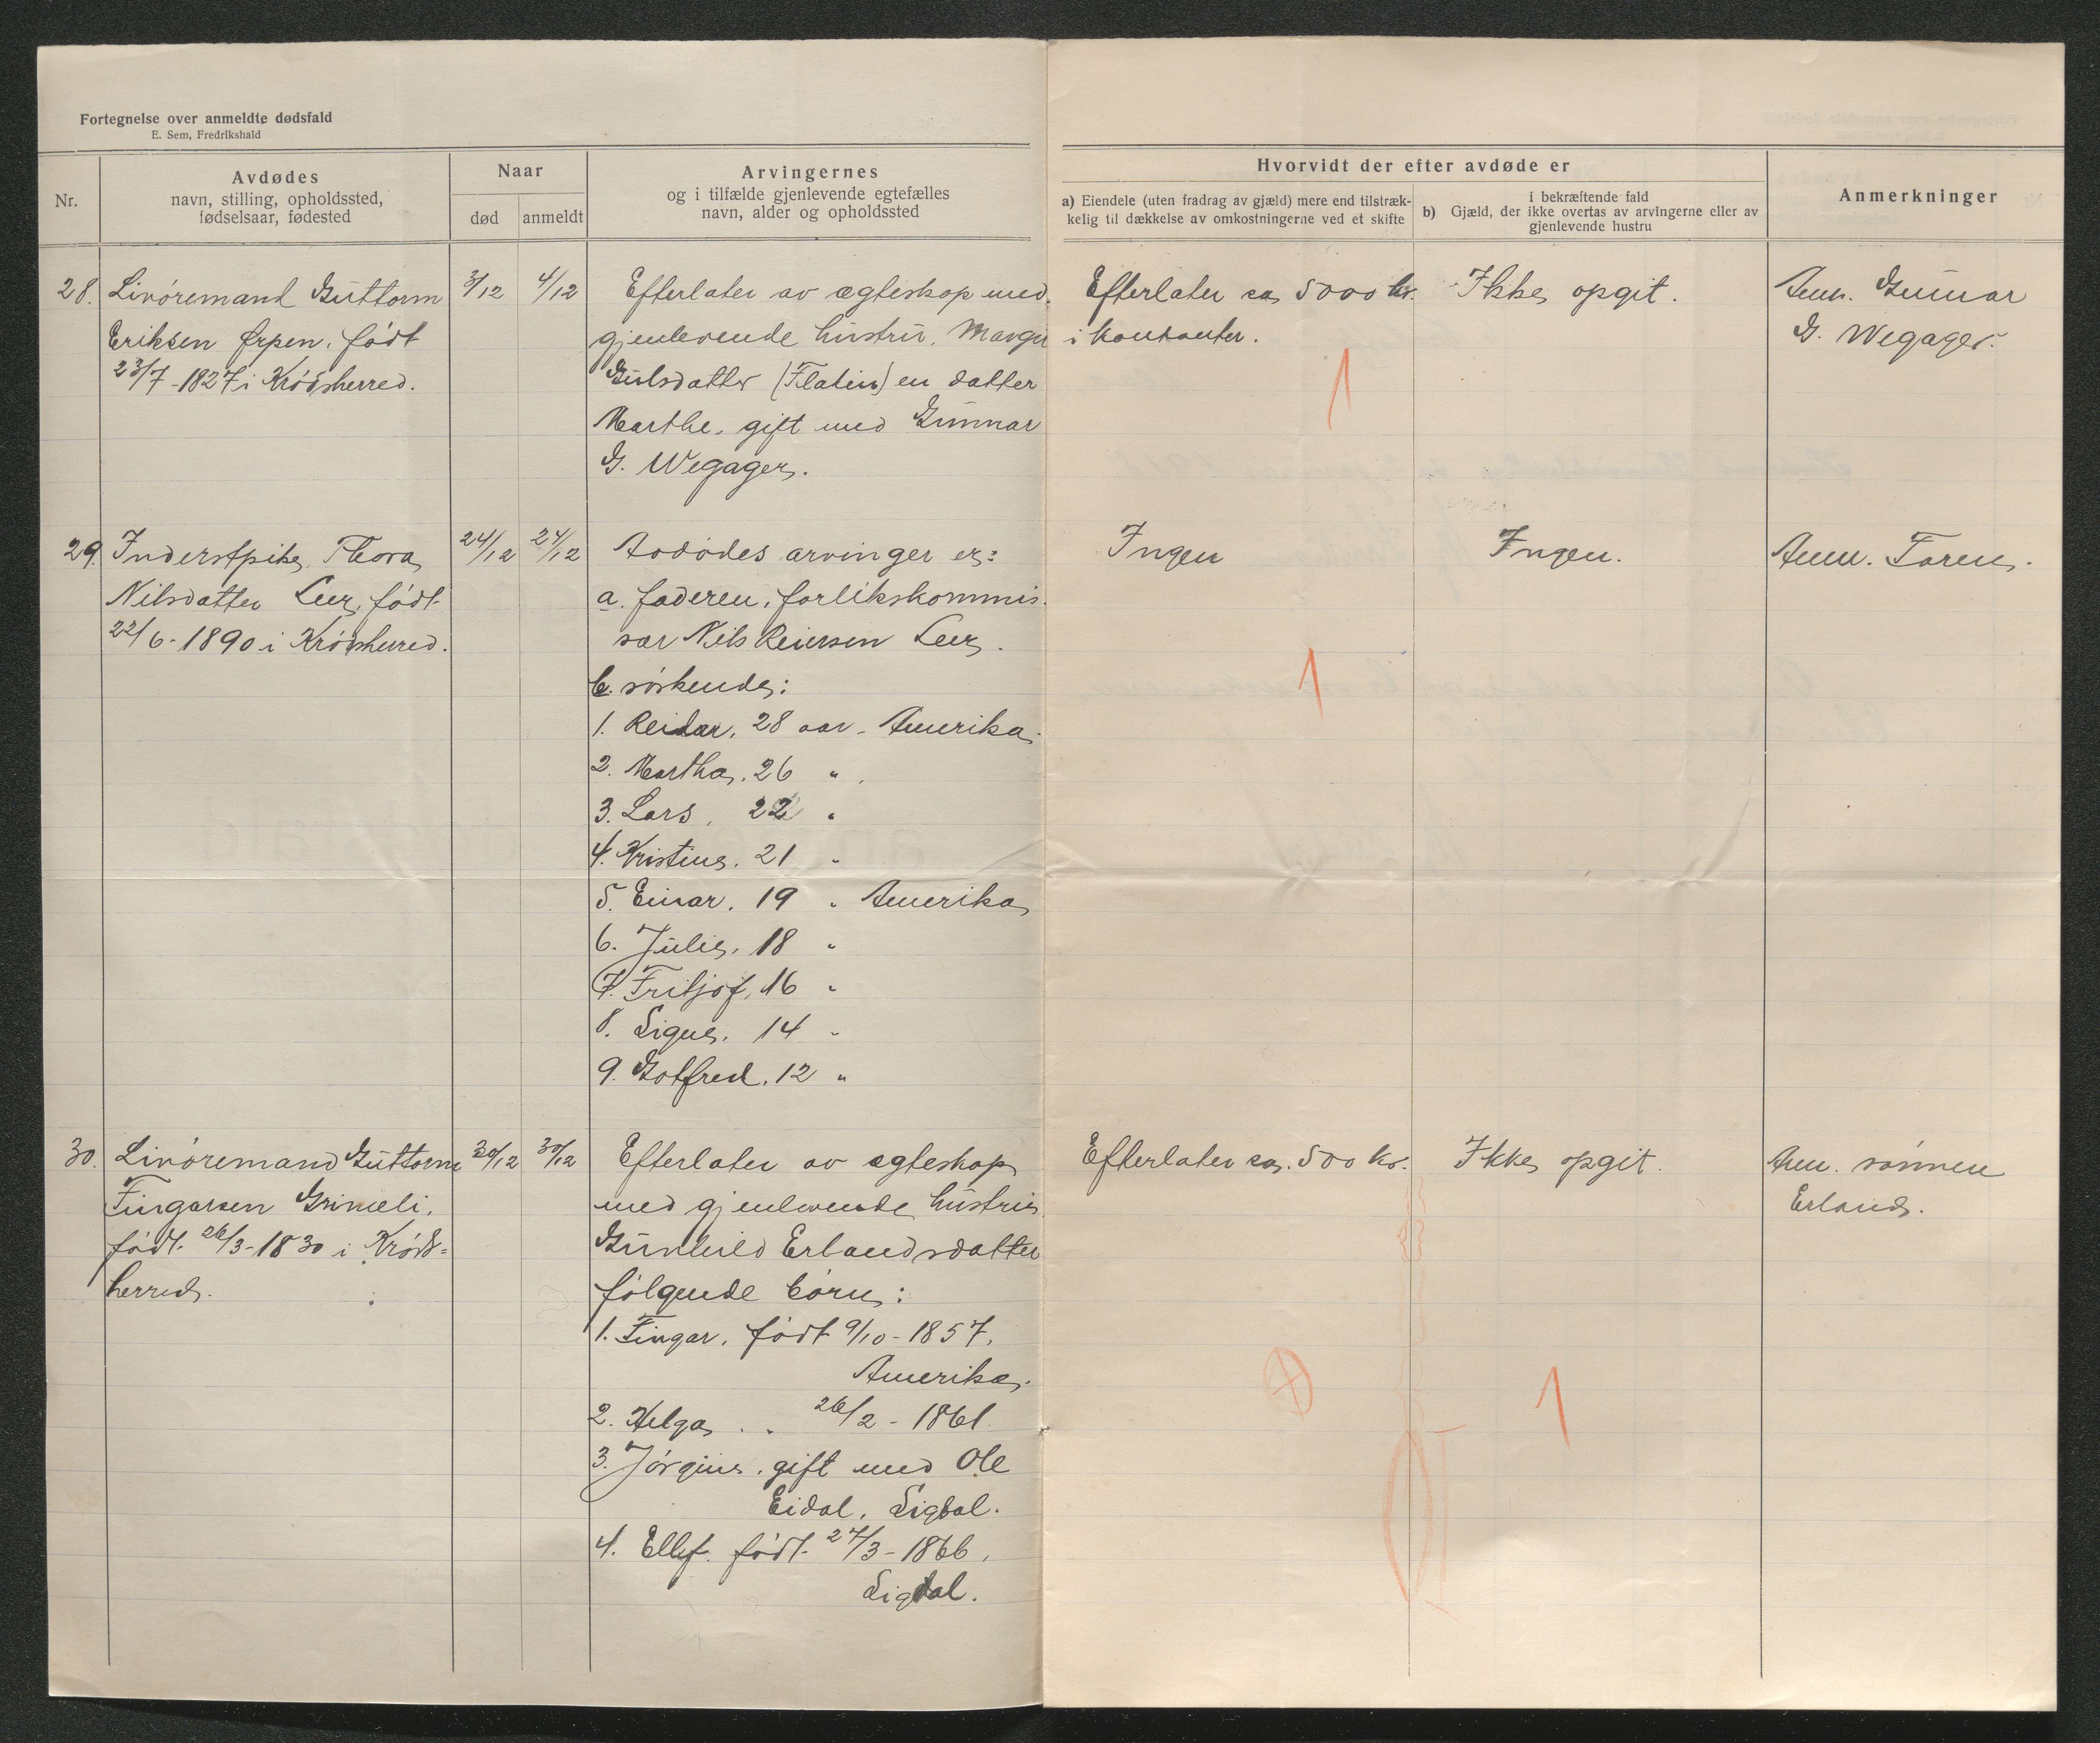 Fortegnelse over anmeldte dødsfald
E. Sem, Fredrikshald
Nr.
Avdødes
navn, stilling, opholdssted,
fødselsaar, fødested
Naar
død
anmeldt
Arvingernes
og i tilfælde gjenlevende egtefælles
navn, alder og opholdssted
Hvorvidt der efter avdøde er
a) Eiendele (uten fradrag av gjæld) mere end tilstræk-
kelig til dækkelse av omkostningerne ved et skifte
i bekræftende fald
b) Gjæld, der ikke overtas av arvingerne eller av
gjenlevende hustru
Anmerkninger
28. Livøremand Guttorm
Eriksen Ørpen, født
23/7-1827 i Krødsherred.
3/12
4/12
Efterlater av ægteskap med
gjenlevende hustru, Margit
Gulsdatter (Flatin) en datter
Marthe, gift med Gunnar
G. Wegager.
Efterlater ca 5000 kr.
i kontanter.
Ikke opgit.
Anm. Gunnar
G. Wegager.
29. Inderstpike, Thora
Nilsdatter Leer, født
22/6-1890 i Krødsherred.
24/12
24/12
Avdødes arvinger er:
a. faderen, forlikskommis-
sær Nils Reiersen Leer.
b. søskende:
1. Reidar, 28 aar - Amerika.
2. Martha, 26 "
3. Lars, 22 "
4. Kristine, 21 "
5. Einar, 19 " Amerika
6. Julie, 18 "
7. Fritjof, 16 "
8. Signe, 14 "
9. Gotfred, 12 "
Ingen
Ingen.
Anm. Faren.
30. Livøremand Guttorm
Fingarsen Grimeli,
født 26/3-1830 i Krøds-
herred.
30/12
30/12
Efterlater av ægteskap
med gjenlevende hustru
Gunhild Erlandsdatter
følgende børn:
1. Fingar, født 9/10-1857,
Amerika.
2. Helga " 26/2-1861.
3. Jørgine, gift med Ole
Eidal, Sigdal.
4. Ellef født 27/3-1866,
Sigdal.
Efterlater ca. 500 kr.
Ikke opgit.
Anm. sønnen
Erland.
1
1
1